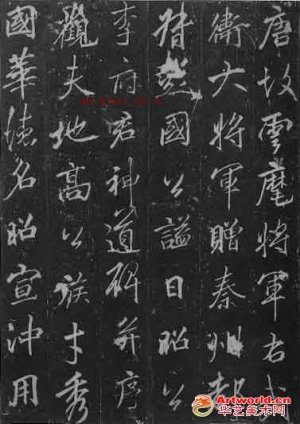 唐故雲麾將軍右武
衛大將軍贈秦州都
督彭國公謚曰昭公
李府君神道碑并序
觀夫地高公族才秀
國華德名昭宣沖用
Artworld.cn
华艺美术网